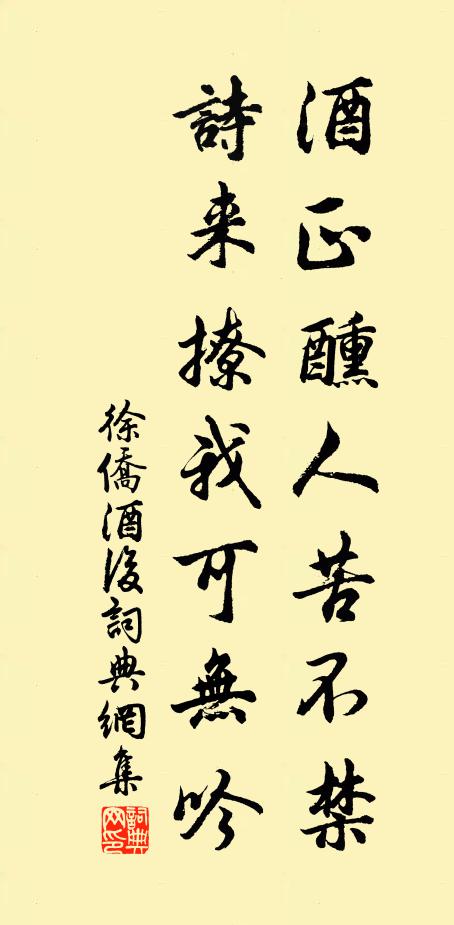 酒正醺人苦不禁
詩来撩我可無吟
徐僑酒後詞典網集
詞典网印